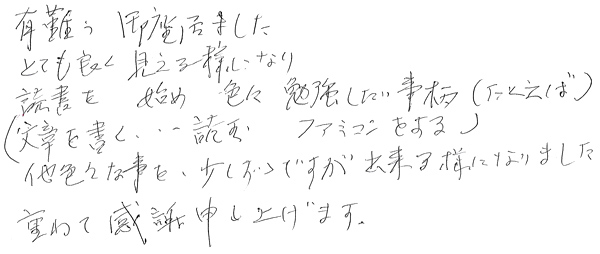 有難う御座居ました
とても良く見える様になり
読書を始め 色々勉強したい事柄(たとえば)
(文章を書く・・読む ファミコンをする)
他色々な事を、少しづつですが出来る様になりました
重ねて感謝申し上げます。